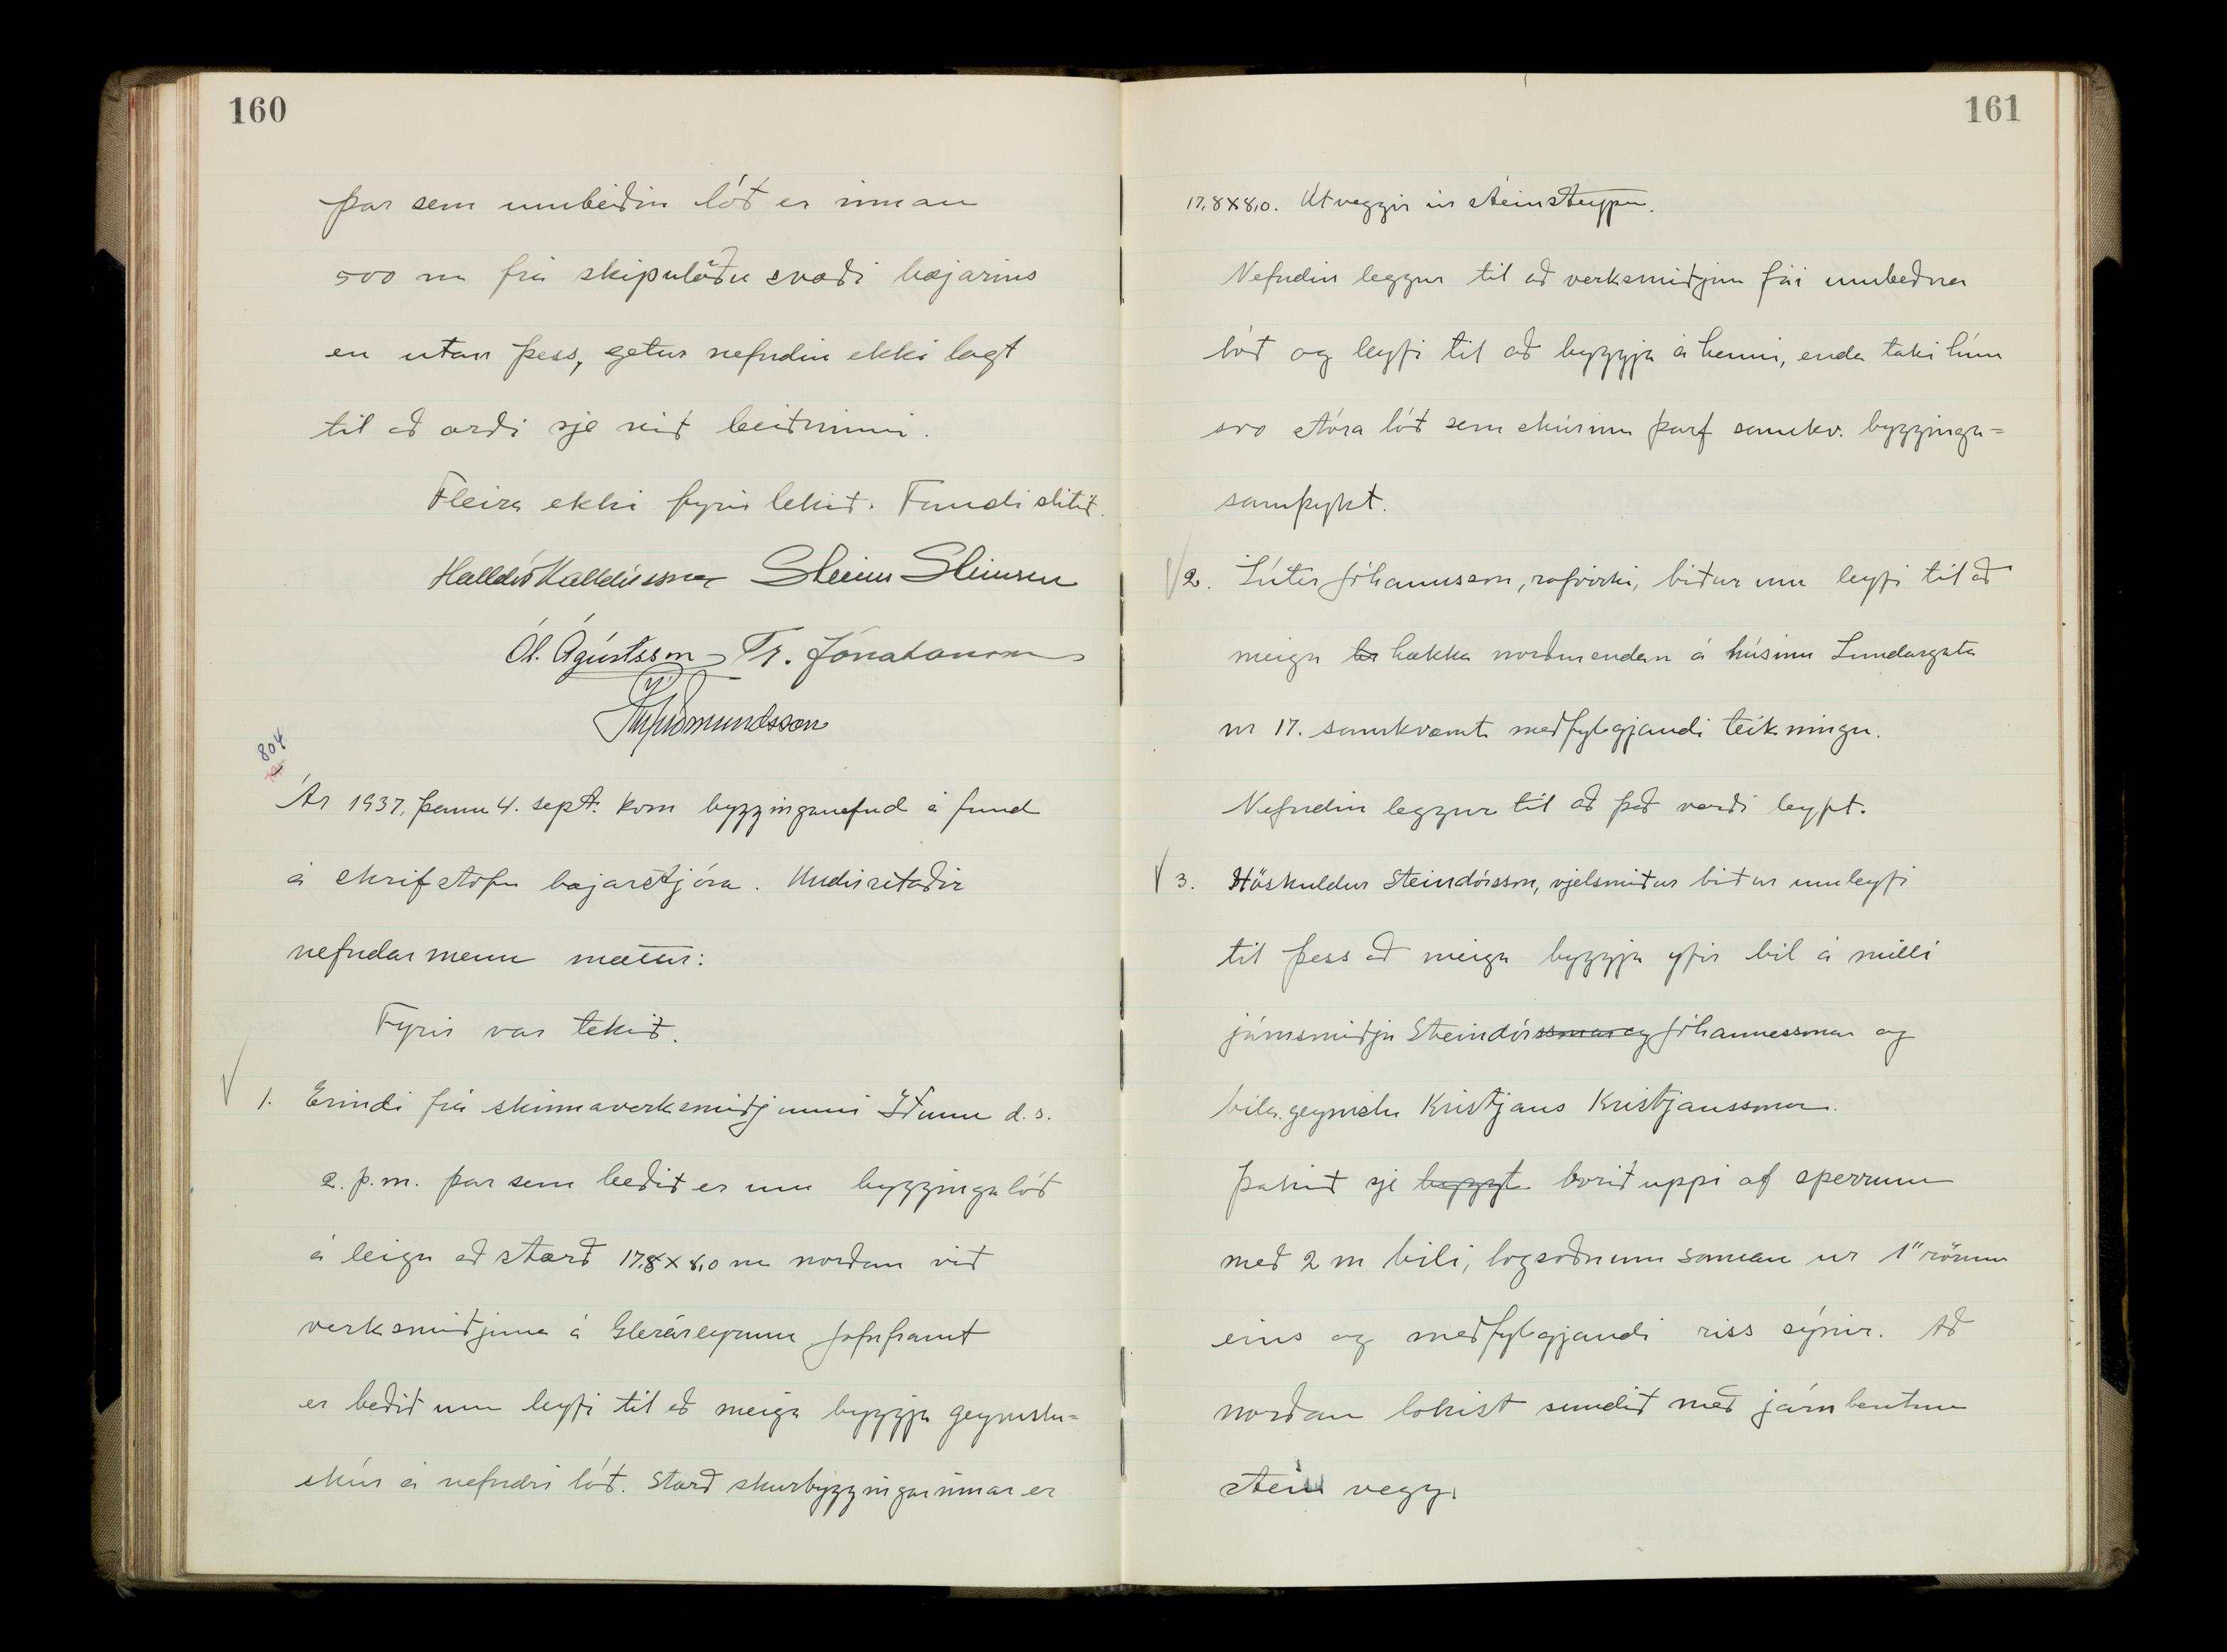 160
þar sem umbeðin lóð er innan
500 m frá skipulögðu svæði bæjarins
en utan þess, getur nefndin ekki lagt
til að orði sje við beiðninni.
Fleira ekki fyrir tekið. Fundi slitið.
Halldór Halldórsson Steinn Steinsen
Ól. Ágústsson Tr. Jónatansson
804
Ár 1937, þann 4. sept. kom bygginganefnd á fund
á skrifstofu bæjarstjóra. Undirritaðir
nefndarmenn mættir:
Fyrir var tekið.
1. Erindi frá skinnaverksmiðjunni Iðunn d.s.
2. þ.m. þar sem beðið er um byggingalóð
á leigu að stærð 17,8 x 8,0 m norðan við
verksmiðjuna á Gleráreyrum jafnframt
er beðið um leyfi til að meiga byggja geymslu=
skúr á nefndri lóð. Stærð skúrbyggingarinnar er
161
17,8 x 8,0. Útveggir úr steinsteypu.
Nefndin leggur til að verksmiðjan fái umbeðna
lóð og leyfi til að byggja á henni, enda taki hún
svo stóra lóð sem skúrinn þarf samkv. bygginga=
samþykt.
2. Lúter Jóhannsson, rafvirki, biður um leyfi til að
meiga hækka norðurendan á húsinu Lundargata
nr 17. samkvæmt meðfylgjandi teikningu.
Nefndin leggur til að það verði leyft.
3. Höskuldur Steindórsson, vjelsmiður biður um leyfi
til þess að meiga byggja yfir bil á milli
járnsmiðju Steindórssonar og Jóhannessonar og
bílageymslu Kristjans Kristjanssonar.
Þakið sje byggt borið uppi af sperrum
með 2 m bili, logsoðnum saman ur 1" rörum
eins og meðfylgjandi riss sýnir. Að
norðan lokist sundið með járnbentum
stein vegg.